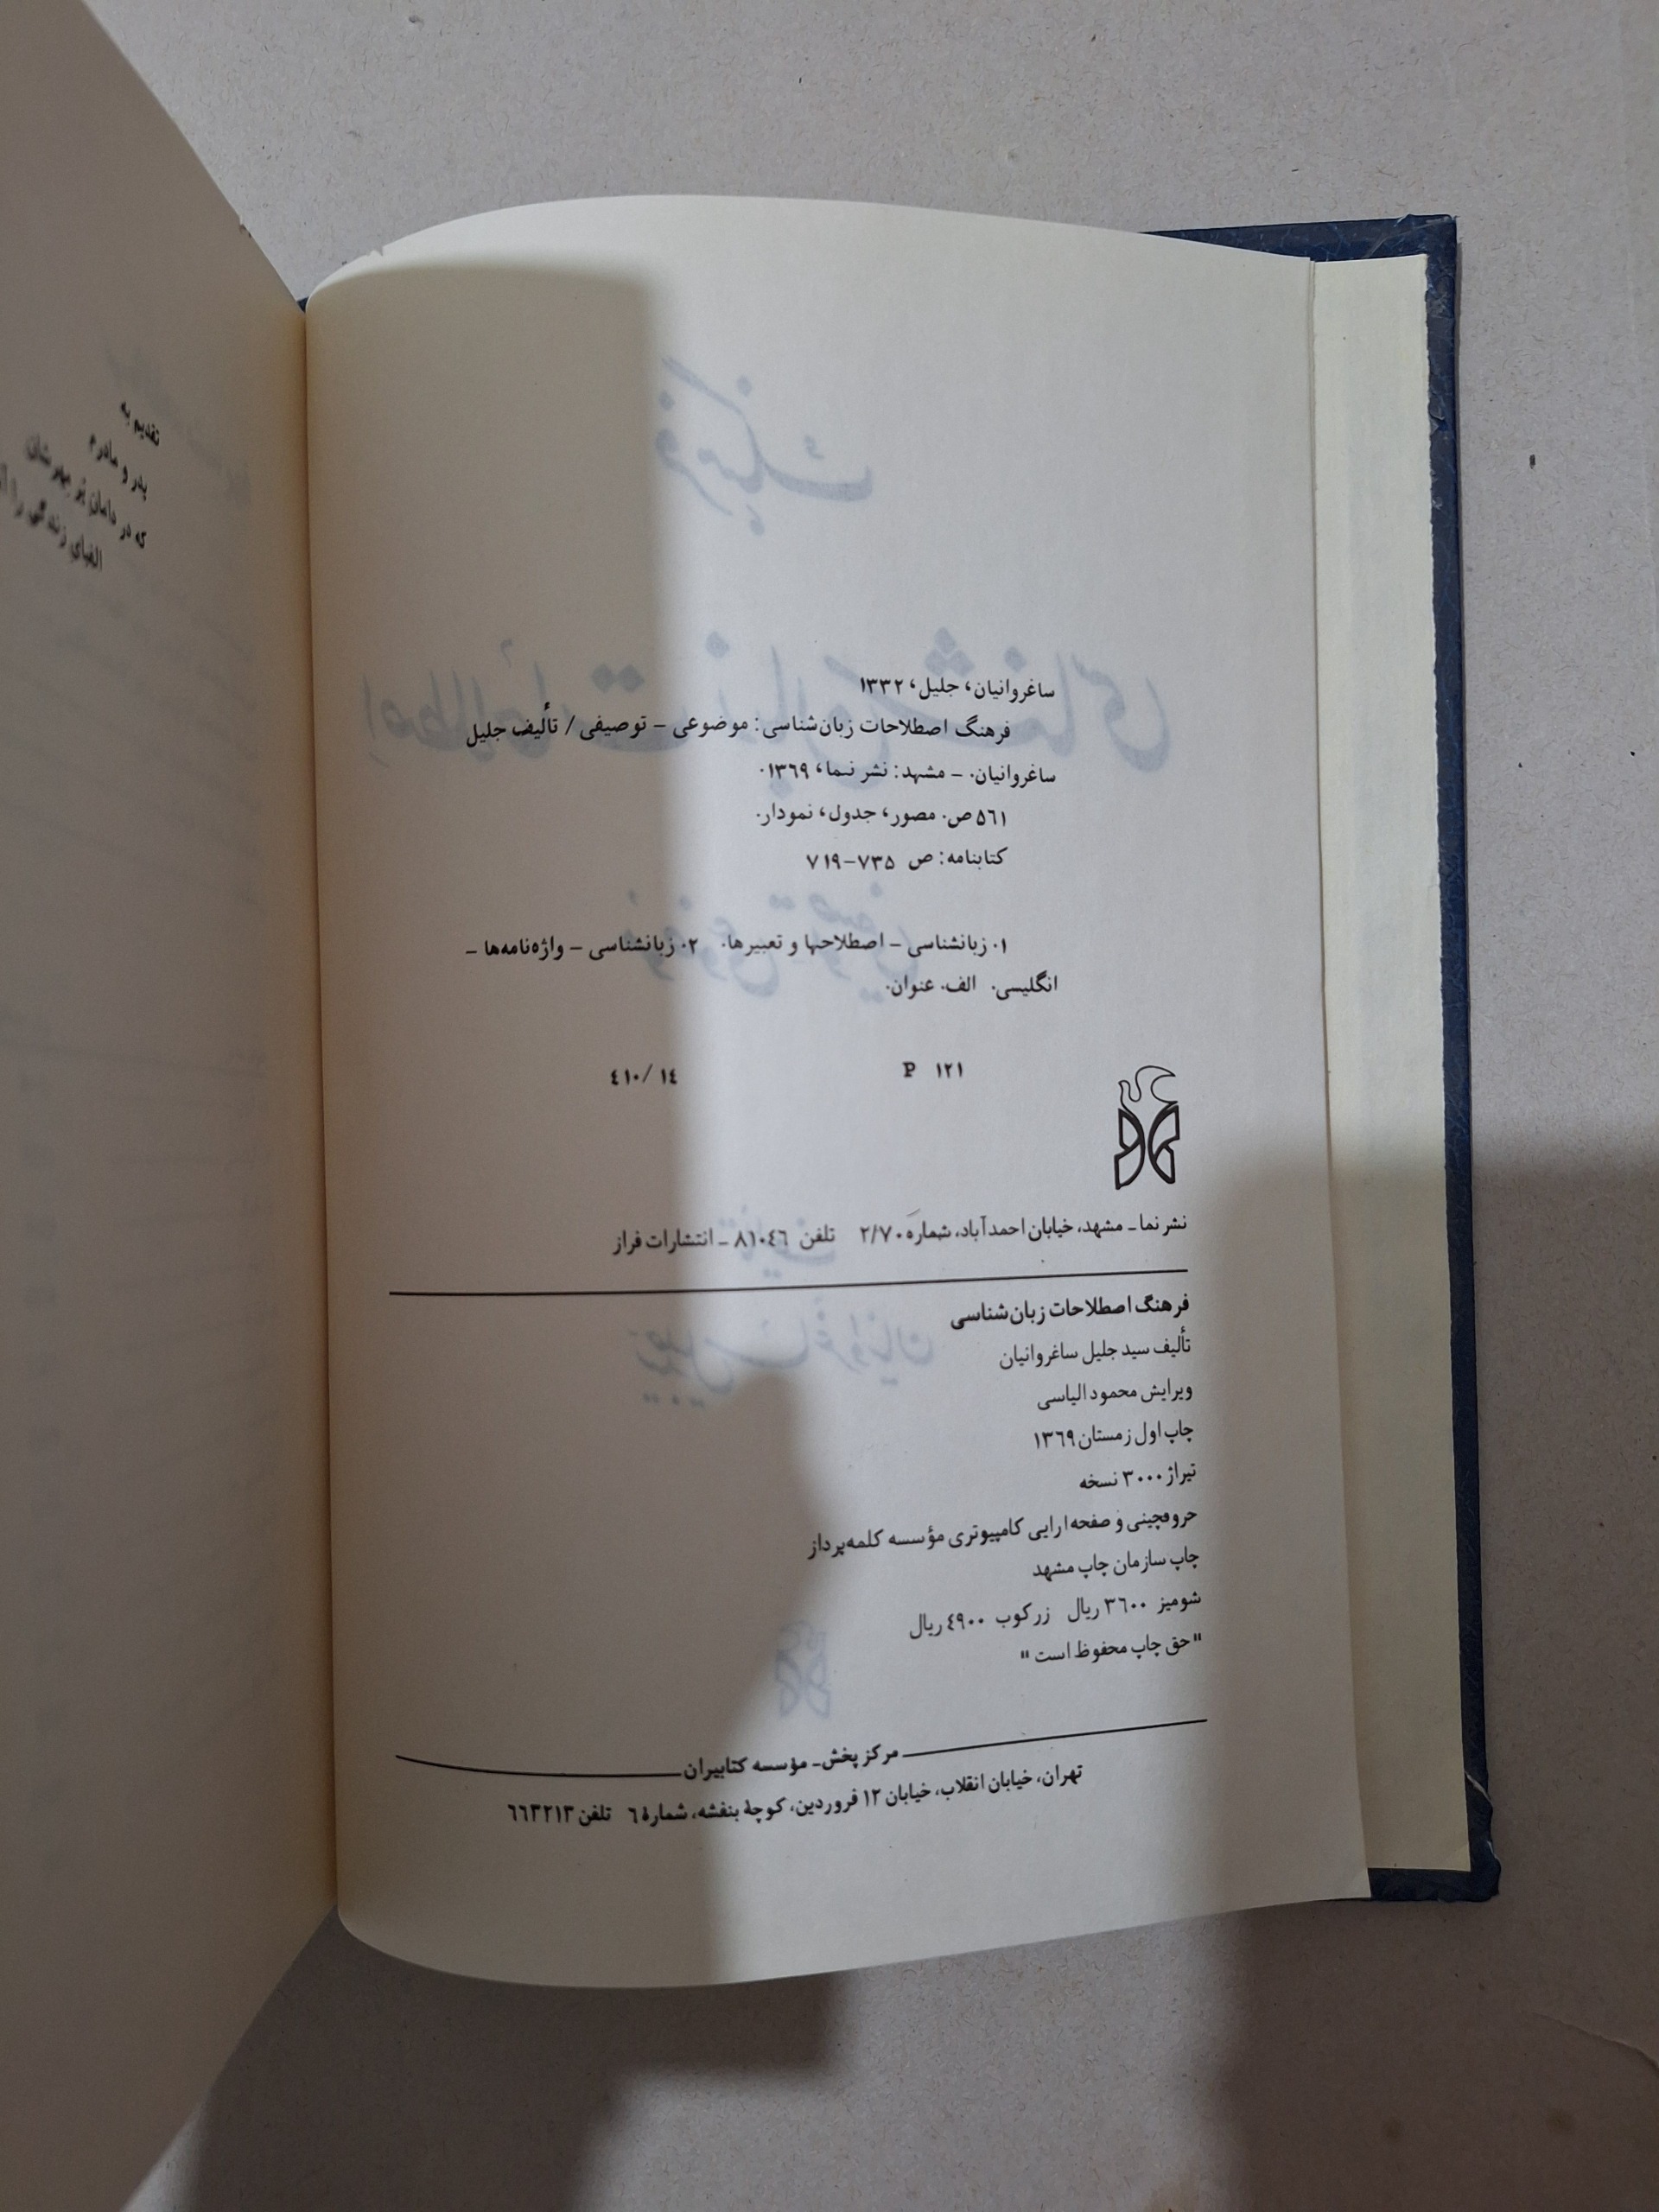 ساغروانیان، جلیل، ۱۳۳۲
فرهنگ اصطلاحات زبان‌شناسی: موضوعی – توصیفی / تألیف جلیل
ساغروانیان. – مشهد: نشر نما، ۱۳۶۹.
۵۶۱ ص. مصور، جدول، نمودار.
کتابنامه: ص ۷۳۵–۷۱۹
۱. زبانشناسی – اصطلاحها و تعبیرها. ۲. زبانشناسی – واژه‌نامه‌ها –
انگلیسی. الف. عنوان.
P ۱۲۱ ۴۱۰/۱۴
نشر نما – مشهد، خیابان احمدآباد، شماره ۲/۷۰ تلفن ۸۱۰۴۶ – انتشارات فراز
فرهنگ اصطلاحات زبان‌شناسی
تألیف سید جلیل ساغروانیان
ویرایش محمود الیاسی
چاپ اول زمستان ۱۳۶۹
تیراژ ۳۰۰۰ نسخه
حروفچینی و صفحه ارایی کامپیوتری مؤسسه کلمه‌پرداز
چاپ سازمان چاپ مشهد
شومیز ۳۶۰۰ ریال زرکوب ۴۹۰۰ ریال
"حق چاپ محفوظ است"
مرکز پخش – مؤسسه کتابیران
تهران، خیابان انقلاب، خیابان ۱۲ فروردین، کوچهٔ بنفشه، شمارهٔ ۶ تلفن ۶۶۳۲۱۳
تقدیم به
پدر و مادرم
که در دامان پُر مهرشان
الفبای زندگی را